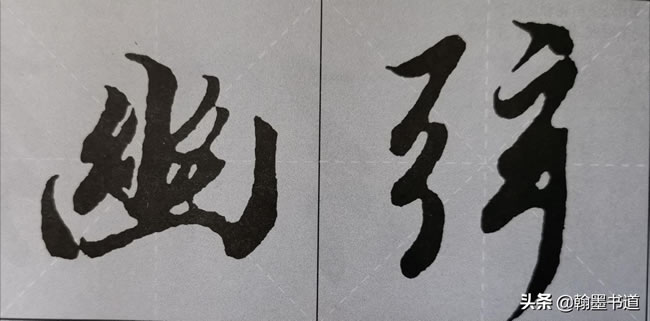 幽弦
头条 @翰墨书道